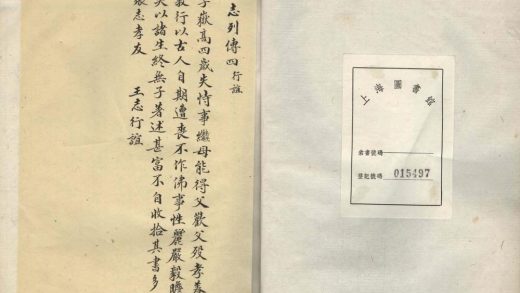 志列傳四 行誼
子嶽高四歲失恃事繼母能得父歡父歿孝養
行以古人自期遭喪不作佛事性嚴毅瞻
失以諸生終無子著述甚富不自收拾其書多
志孝友 王志行誼
圖
索書號碼
登記號碼 015497